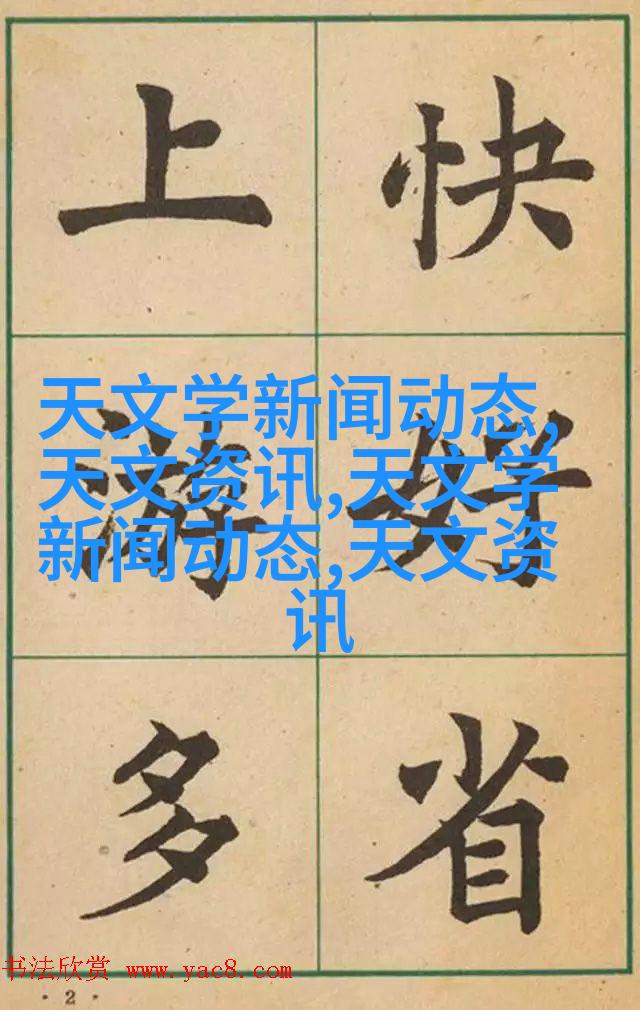 上游多
快好省
天文学新闻动态,
天文资讯,天文学
新闻动态,天文资
讯
书法欣赏 www.yac8.com
·2·